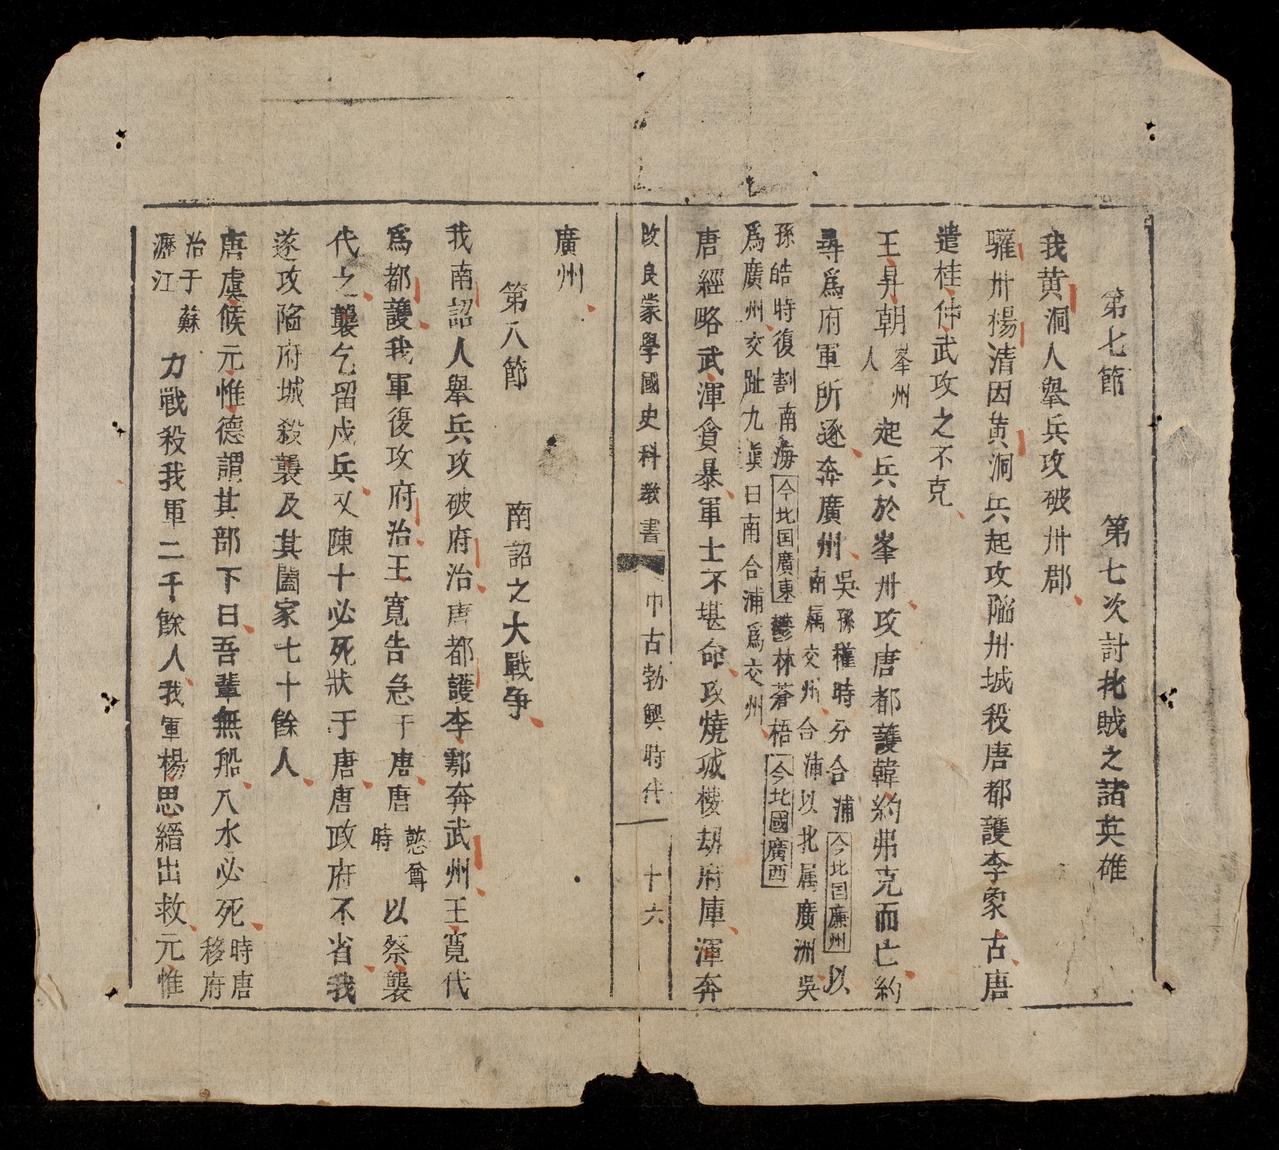 第七節　第七次討北賊之諸英雄
我黄洞人舉兵攻破卅郡
驩卅楊清因黄洞兵起攻陷州城殺唐都護李象古唐
遣桂仲武攻之不克
王昇朝峯州人起兵於峯卅攻唐都護韓約弗克而亡約
尋爲府軍所逐奔廣州吳孫權時分合浦今北国廉州以南属交州合浦以北属廣洲吳
孫皓時復割南海今北国廣東鬱林蒼梧今北國廣西爲廣州交趾九眞日南合浦爲交州
唐經略武渾貪暴軍士不堪命攻燒城樓刼府庫渾奔
改良蒙學國史科教書　中古勃興時代　十六
廣州
第八節　南詔之大戰争
我南詔人舉兵攻破府治唐都護李鄠奔武州王寬代
爲都護我軍復攻府治王寬告急于唐唐懿宗時以蔡襲
代之襲乞留戍兵又陳十必死狀于唐唐政府不省我
遂攻陷府城殺襲及其闔家七十餘人
唐虞候元惟德謂其部下曰吾輩無船入水必死時唐移府
治于蘇瀝江力戰殺我軍二千餘人我軍楊思縉出救元惟